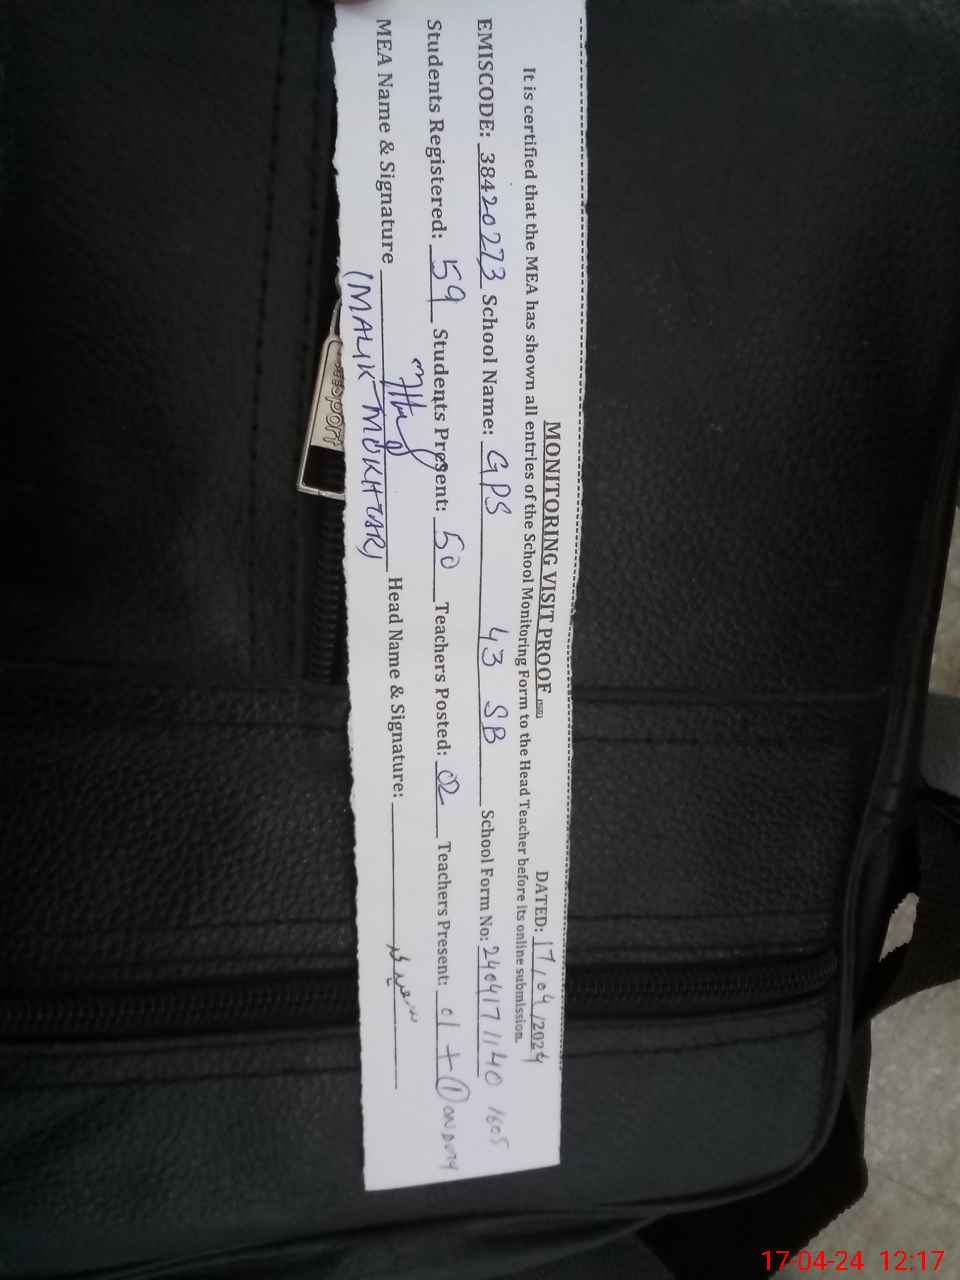 MONITORING VISIT PROOF
DATED: 17/04/2024
It is certified that the MEA has shown all entries of the School Monitoring Form to the Head Teacher before its online submission.
EMISCODE: 38420273 School Name: GPS 43 SB School Form No: 240417 1140 1605
Students Registered: 59 Students Present: 50 Teachers Posted: 02 Teachers Present: 01 + 1 ON DUTY
MEA Name & Signature Head Name & Signature:
(MALIK MUKHTAR)
port
17-04-24 12:17